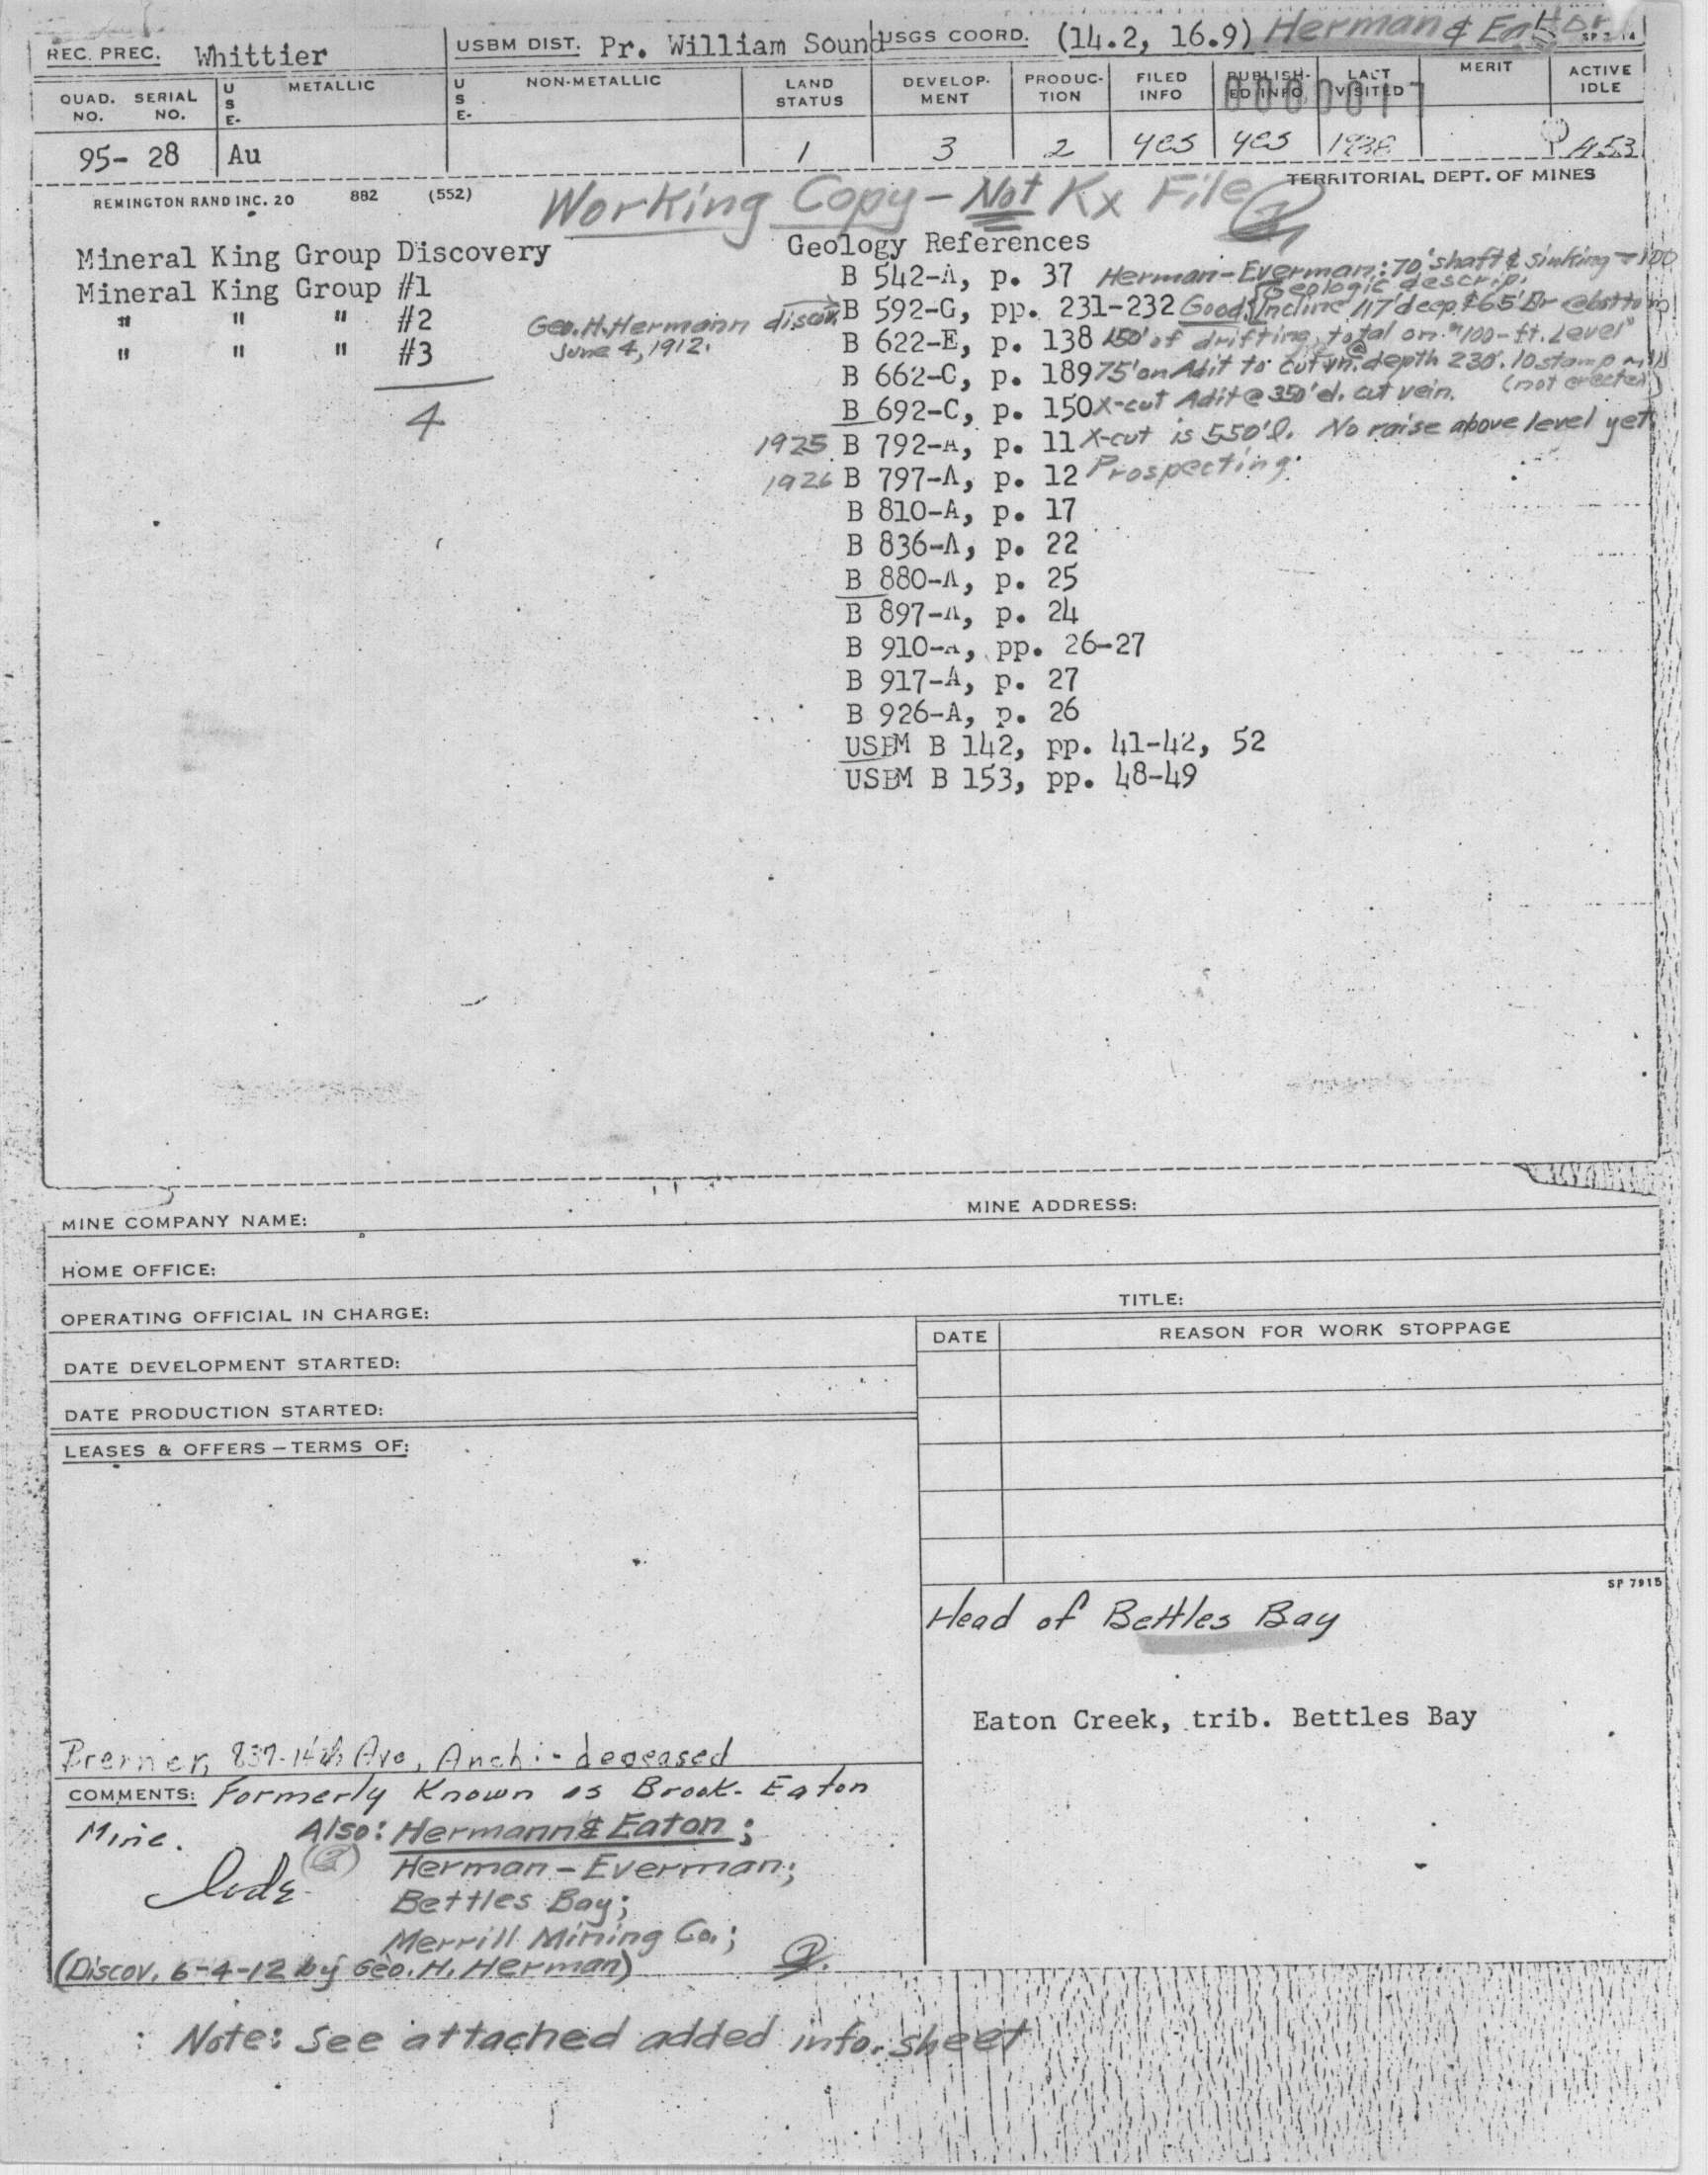 REC. PREC. Whittier USBM DIST. Pr. William Sound USGS COORD. (14.2, 16.9) Herman &
QUAD. NO. SERIAL NO. USE- METALLIC USE- NON-METALLIC LAND STATUS DEVELOP-MENT PRODUC-TION FILED INFO PUBLISH-ED INFO LAST VISITED MERIT ACTIVE IDLE
95- 28 Au 1 3 2 yes yes 1938 A53
TERRITORIAL DEPT. OF MINES
REMINGTON RAND INC. 20 882 (552)
Working Copy - Not Kx File
Mineral King Group Discovery
Mineral King Group #1
" " " #2
" " " #3
4
Geo. H. Hermann discov.
June 4, 1912.
Geology References
B 542-A, p. 37 Herman-Everman: 70' shaft & sinking → 100
Geologic descrip.
B 592-G, pp. 231-232 Good; Incline 117' deep & 65' Dr @ bottom
B 622-E, p. 138 150' of drifting, total on "100-ft. Level"
B 662-C, p. 189 75' on Adit to cut vn. @ depth 230'. 10 stamp mill
(not erected)
B 692-C, p. 150 X-cut Adit @ 350' d. cut vein.
1925 B 792-A, p. 11 X-cut is 550' l. No raise above level yet.
1926 B 797-A, p. 12 Prospecting.
B 810-A, p. 17
B 836-A, p. 22
B 880-A, p. 25
B 897-A, p. 24
B 910-A, pp. 26-27
B 917-A, p. 27
B 926-A, p. 26
USBM B 142, pp. 41-42, 52
USBM B 153, pp. 48-49
MINE COMPANY NAME: MINE ADDRESS:
HOME OFFICE:
OPERATING OFFICIAL IN CHARGE: TITLE:
DATE REASON FOR WORK STOPPAGE
DATE DEVELOPMENT STARTED:
DATE PRODUCTION STARTED:
LEASES & OFFERS - TERMS OF:
SP 7915
Head of Bettles Bay
Eaton Creek, trib. Bettles Bay
Bremer, 837-14th Ave, Anch. - deceased
COMMENTS: Formerly Known as Brook-Eaton
Mine. Also: Hermann & Eaton;
Herman-Everman;
lode
Bettles Bay;
Merrill Mining Co.;
(Discov. 6-4-12 by Geo. H. Herman)
Note: See attached added info. sheet